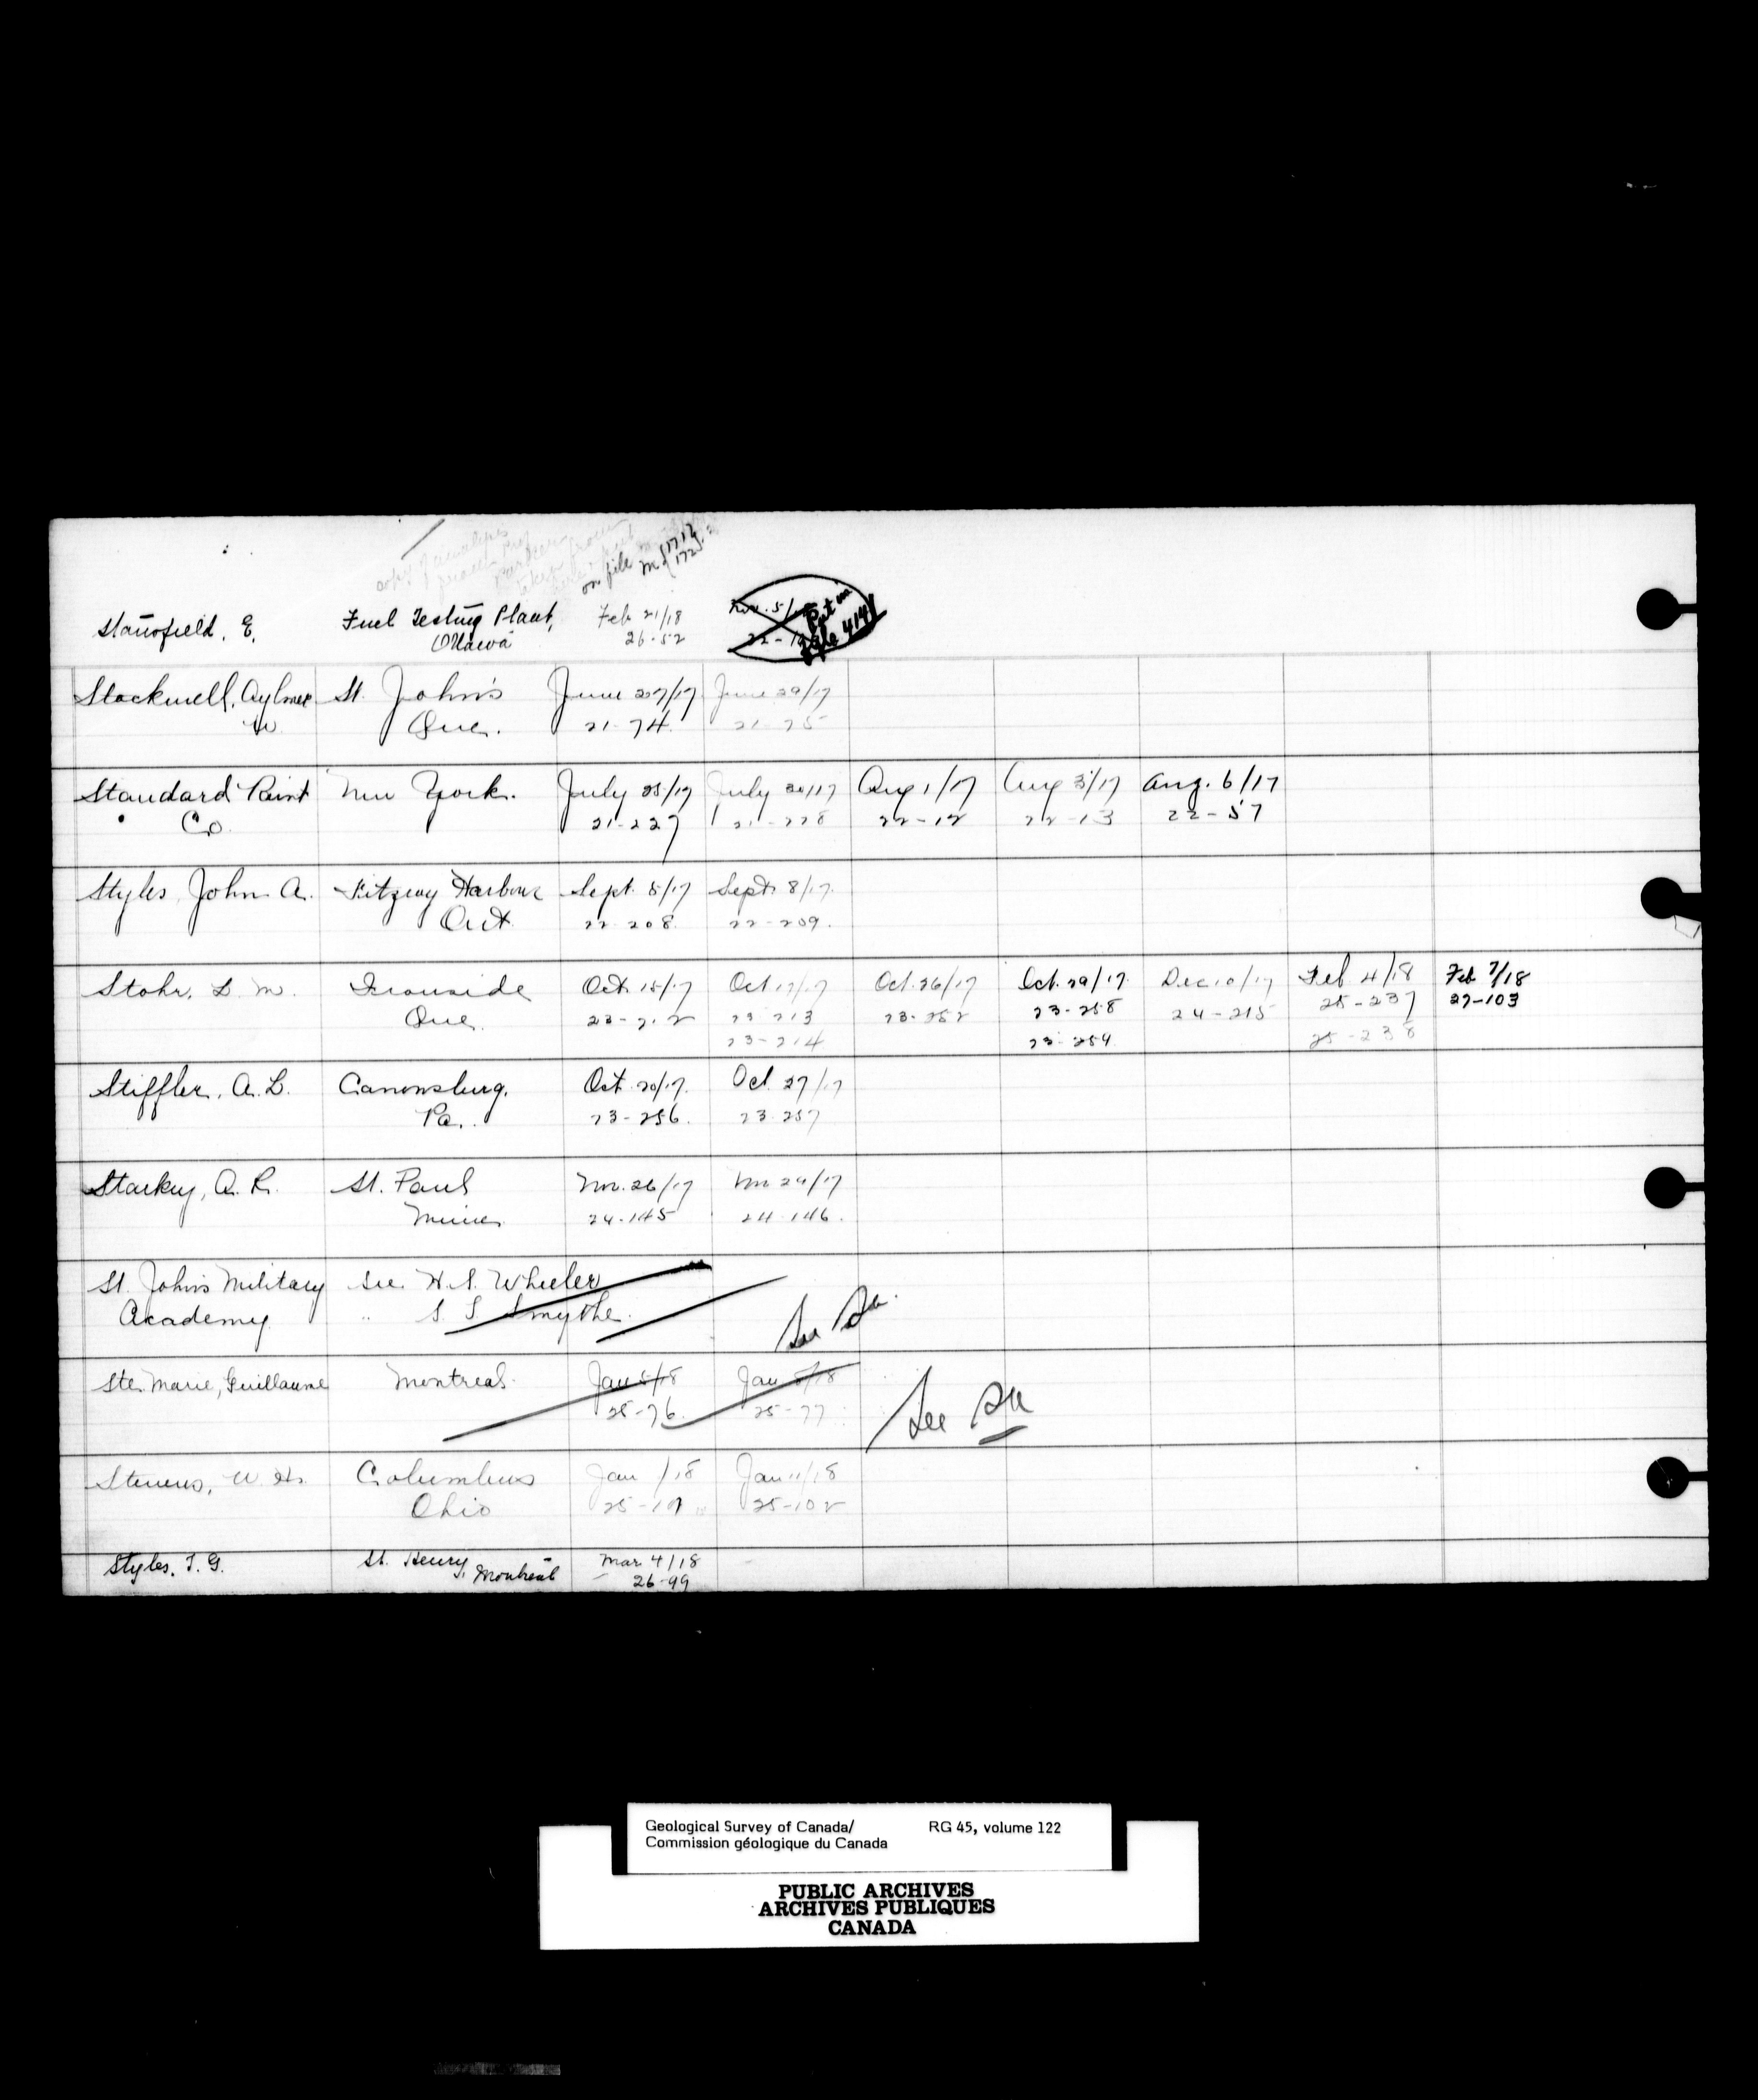 on file M {1717
1725
Stansfield, E. Fuel Testing Plant, Feb 21/18 Nov. 5/ Put in
Ottawa 26-52 22-1 file 414
Stockwell, Aylmer St. John's June 27/17 June 29/17
W. Que. 21-74 21-75
Standard Paint New York. July 28/17 July 30/17 Aug 1/17 Aug 3/17 Aug. 6/17
Co. 21-227 21-228 22-12 22-13 22-57
Styles, John A. Fitzroy Harbour Sept. 5/17 Sept. 8/17.
Ont. 22-208 22-209.
Stohr, L. M. Ironside Oct. 15/17 Oct 17/17 Oct. 26/17 Oct. 29/17. Dec 10/17 Feb 4/18 Feb 7/18
Que. 23-212 23-213 23-252 23-258 24-215 25-237 27-103
23-214 23-259 25-238
Stiffler, A. L. Canonsburg, Oct. 20/17. Oct. 27/17
Pa. 23-256. 23-257
Starkey, A. R. St. Paul Nov. 26/17 Nov 29/17
Minn. 24-145 24-146.
St. John's Military See H. S. Wheeler
Academy " S. S. Smythe. See Sa.
Ste. Marie, Guillaume Montreal. Jan 5/18 Jan 8/18
25-76. 25-77 See Sa
Stevens, W. H. Columbus Jan /18 Jan 11/18
Ohio 25-101 25-102
Styles, T. G. St. Henry, Montreal Mar 4/18
26-99
Geological Survey of Canada/ RG 45, volume 122
Commission géologique du Canada
PUBLIC ARCHIVES
ARCHIVES PUBLIQUES
CANADA